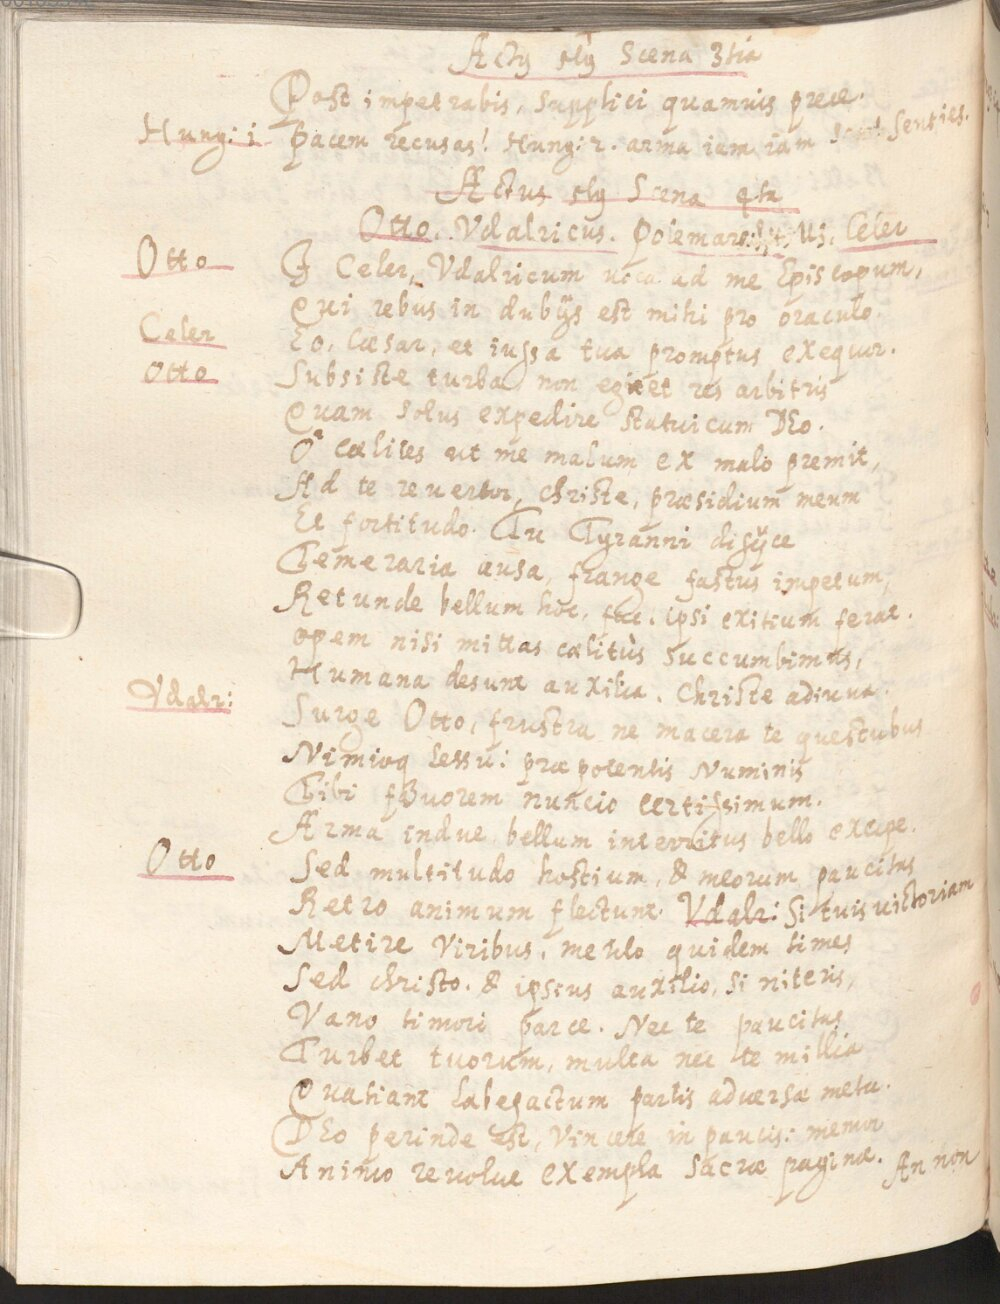 Actus Scena 3tia
Post impetrabis, supplici quamuis prece.
Hung: 1. Pacem recusas! Hung: 2. arma iam, iam, iam! senties.
Actus Scena 4ta
Otto. Vdalricus. Polemar Celer
Otto I Celer, Vdalricum uoca ad me Episcopum,
Qui rebus in dubijs est mihi pro oraculo.
Celer Eo, Cæsar, et iussa tua promptus exequor.
Otto Subsiste turba, non eget res arbitris
Quam solus expedire statui cum DEo.
O cœlites ut me malum ex malo premit,
Ad te reuertor, Christe, præsidium meum
Et fortitudo. Tu Tyranni disijce
Temeraria ausa, frange fastus impetum,
Retunde bellum hoc, fac, ipsi exitium ferat.
opem nisi mittas cœlitùs succumbimus,
Humana desunt auxilia. Christe adiuua.
Vdalr: Surge Otto, frustra ne macera te questubus
Nimioq lessu: præpotentis Numinis
Tibi fauorem nuncio certissimum.
Arma indue, bellum interritus bello excipe.
Otto Sed multitudo hostium, & meorum paucitas
Retro animum flectunt. Vdalr: Si tuis uictoriam
Metire Viribus, merito quidem times
Sed Christo, & ipsius auxilio, si niteris,
Vano timori parce. Nec te paucitas
Turbet tuorum, multa nec te millia
Quatiant labefactum partis aduersæ metu.
DEo perinde est, Vincere in paucis: memor
Animo reuolue exempla sacræ paginæ. An non